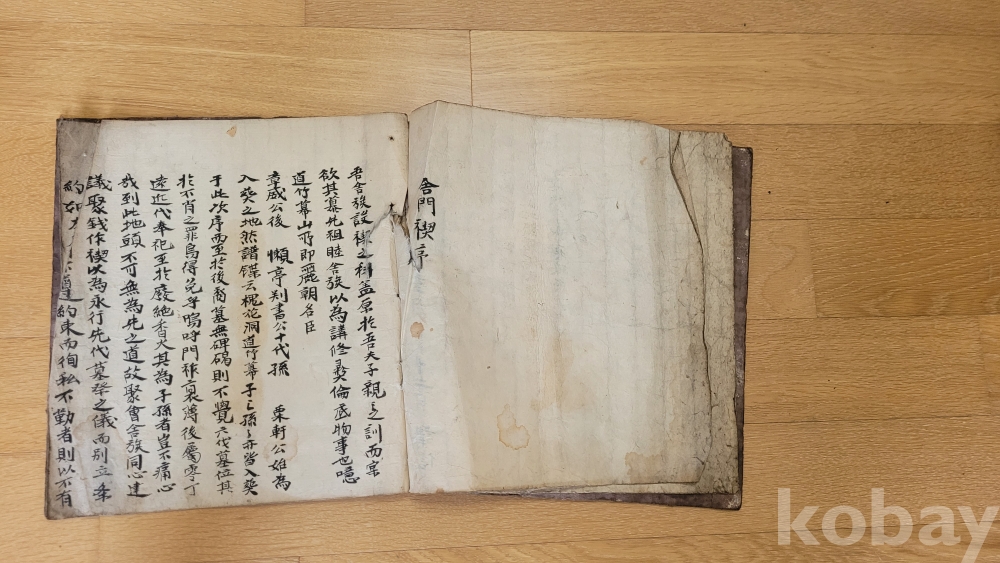 舍門禊序
吾舍族設禊之科盖原於吾夫子親之訓而宗
欲其慕先祖睦舍族以為講修彛倫底物事也噫
道竹幕山所即麗朝名臣
章威公後 懶亭判書公十代孫 東軒公始為
入葬之地然譜牒云槐花洞道竹幕子之孫之亦皆入葬
于此次序而至於後裔墓無碑碣則不覺六代墓位其
於不肖之罪烏得免乎嗚呼門祚衰薄後屬零丁
遠近代奉祀至於廢絶香火其為子孫者豈不痛心
哉到此地頭不可無為先之道故聚會舍族同心建
議聚錢作禊以為永行先代墓祭之儀而別立条
約如 遵約束而徇私不勤者則以不有
kobay